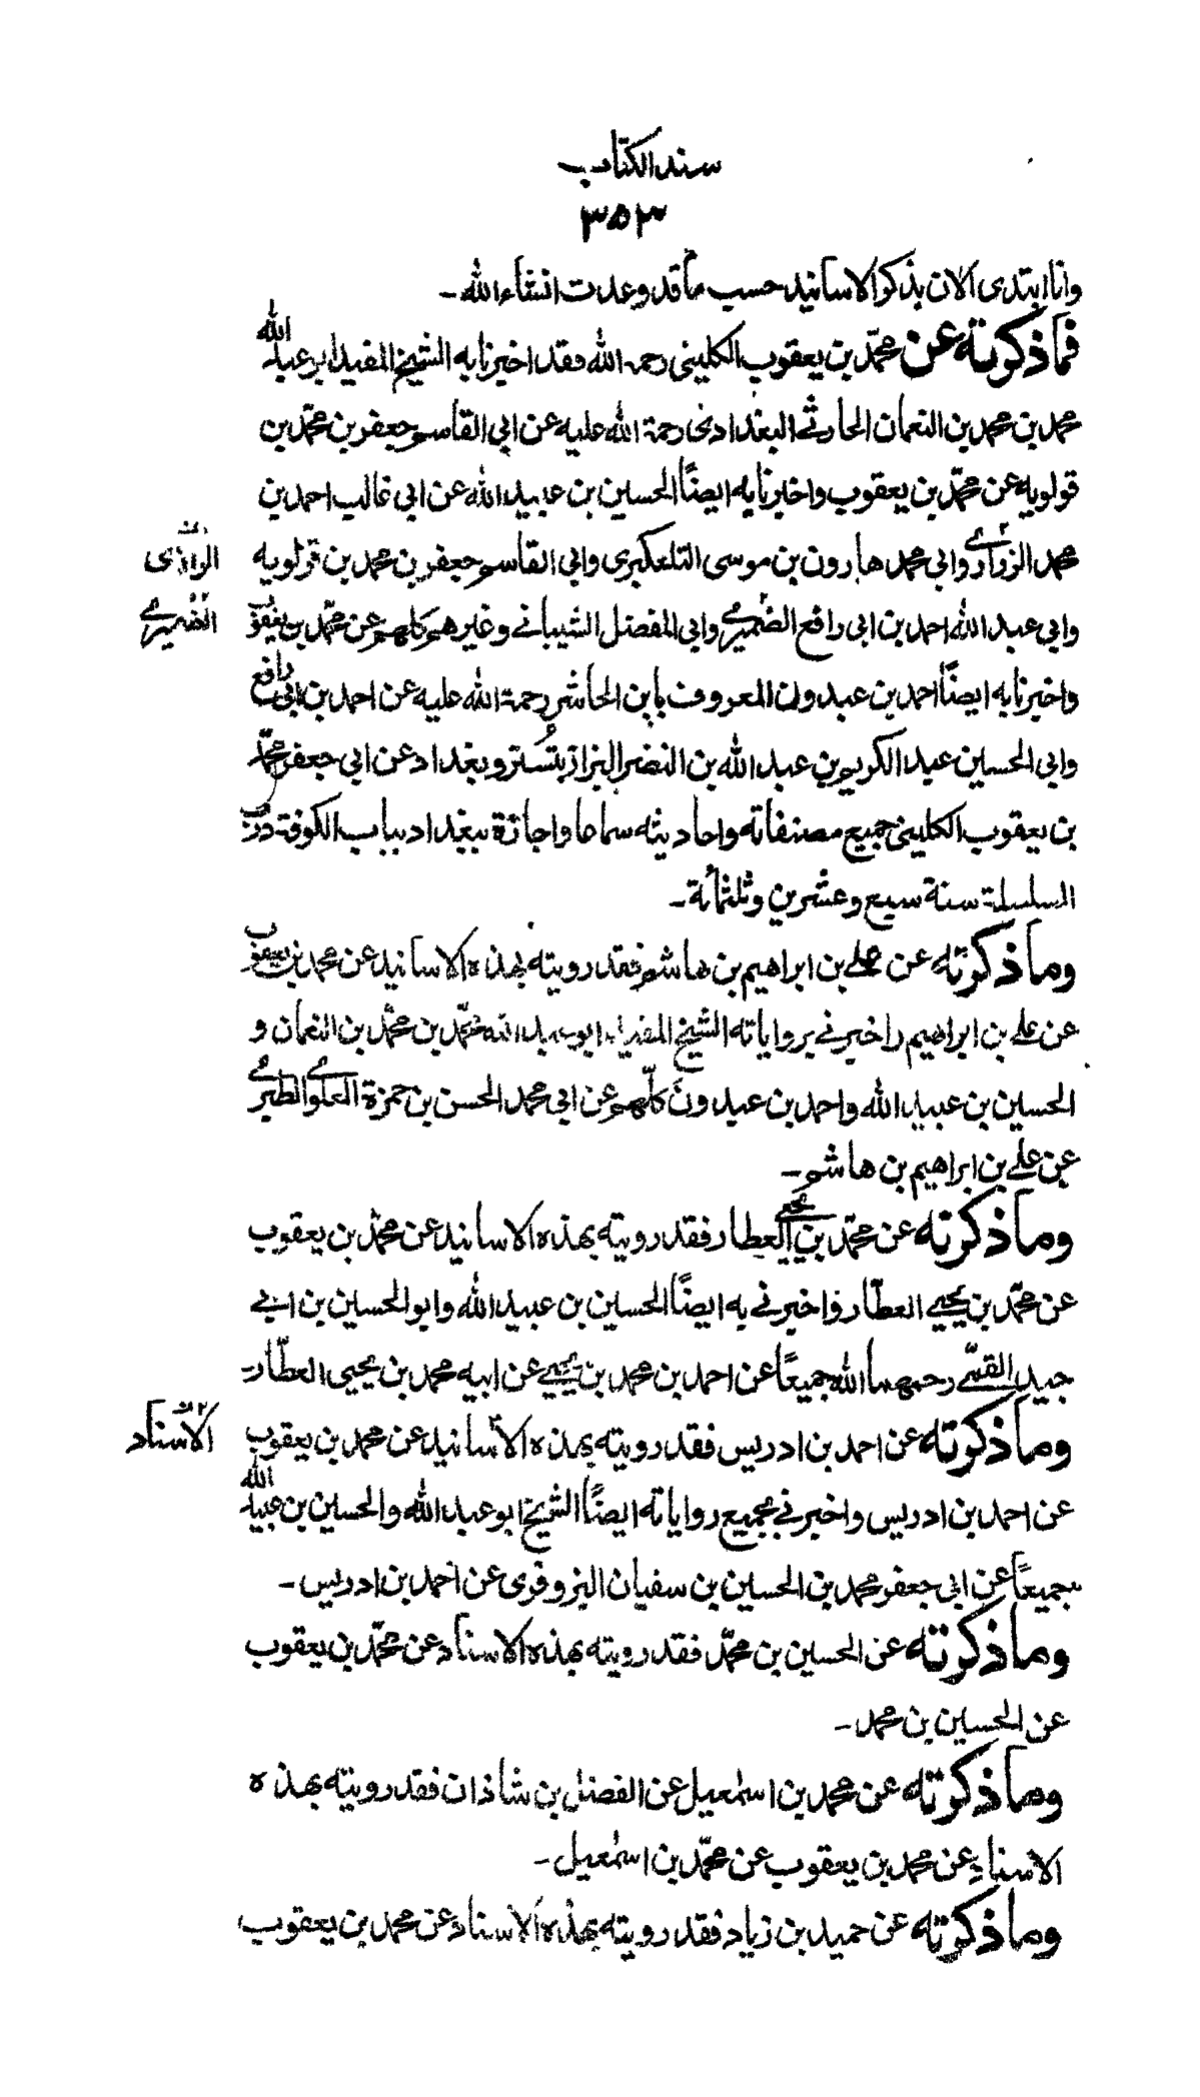 سند الكتاب
٣٥٣
وانا ابتدى الان بذكر الاسانيد حسب ما قد وعدت انشاء الله ـ
فما ذكرته عن محمّد بن يعقوب الكلينى رحمه الله فقد اخبرنا به الشيخ المفيد ابو عبد الله
محمد بن محمد بن النعمان الحارثي البغدادى رحمة الله عليه عن ابى القاسم جعفر بن محمّد بن
قولويه عن محمّد بن يعقوب واخبرنا به ايضًا الحسين بن عبيد الله عن ابى غالب احمد بن
محمد الزرارے وابى محمد هارون بن موسى التلعكبرى وابى القاسم جعفر بن محمد بن قولويه
الرازى
وابى عبد الله احمد بن ابى رافع الضميرے وابى المفضل الشيبانے وغيرهم كلهم عن محمّد بن يعقوب
الضميرے
واخبرنا به ايضًا احمد بن عبدون المعروف بابن الحاشر رحمة الله عليه عن احمد بن ابى رافع
وابى الحسين عبد الكريم بن عبد الله بن النضر البزاز بتستر وبغداد عن ابى جعفر محمّد
بن يعقوب الكلينى جميع مصنفاته واحاديثه سماعا واجازة ببغداد بباب الكوفة درب
السلسلة سنة سبع وعشرين وثلثمائة ـ
وما ذكرته عن علے بن ابراهيم بن هاشم فقد رويته بهذه الاسانيد عن محمد بن يعقوب
عن علے بن ابراهيم واخبرنے برواياته الشيخ المفيد ابو عبد الله محمّد بن محمّد بن النعمان و
الحسين بن عبيد الله واحمد بن عبدون كلّهم عن ابى محمد الحسن بن حمزة العلوے الطبرے
عن علے بن ابراهيم بن هاشم ـ
وما ذكرته عن محمّد بن يحيے العطار فقد رويته بهذه الاسانيد عن محمّد بن يعقوب
عن محمّد بن يحيے العطّار واخبرنے به ايضًا الحسين بن عبيد الله وابو الحسين بن ابے
جيد القمّے رحمهما الله جميعًا عن احمد بن محمد بن يحيے عن ابيه محمد بن يحيى العطّار ـ
وما ذكرته عن احمد بن ادريس فقد رويته بهذه الاسانيد عن محمد بن يعقوب
الاسناد
عن احمد بن ادريس واخبرنے بجميع رواياته ايضًا الشيخ ابو عبد الله والحسين بن عبيد الله
جميعًا عن ابى جعفر محمد بن الحسين بن سفيان البزوفرى عن احمد بن ادريس ـ
وما ذكرته عن الحسين بن محمّد فقد رويته بهذه الاسناد عن محمّد بن يعقوب
عن الحسين بن محمد ـ
وما ذكرته عن محمد بن اسمٰعيل عن الفضل بن شاذان فقد رويته بهذه
الاسناد عن محمد بن يعقوب عن محمّد بن اسمٰعيل ـ
وما ذكرته عن حميد بن زياد فقد رويته بهذه الاسناد عن محمد بن يعقوب